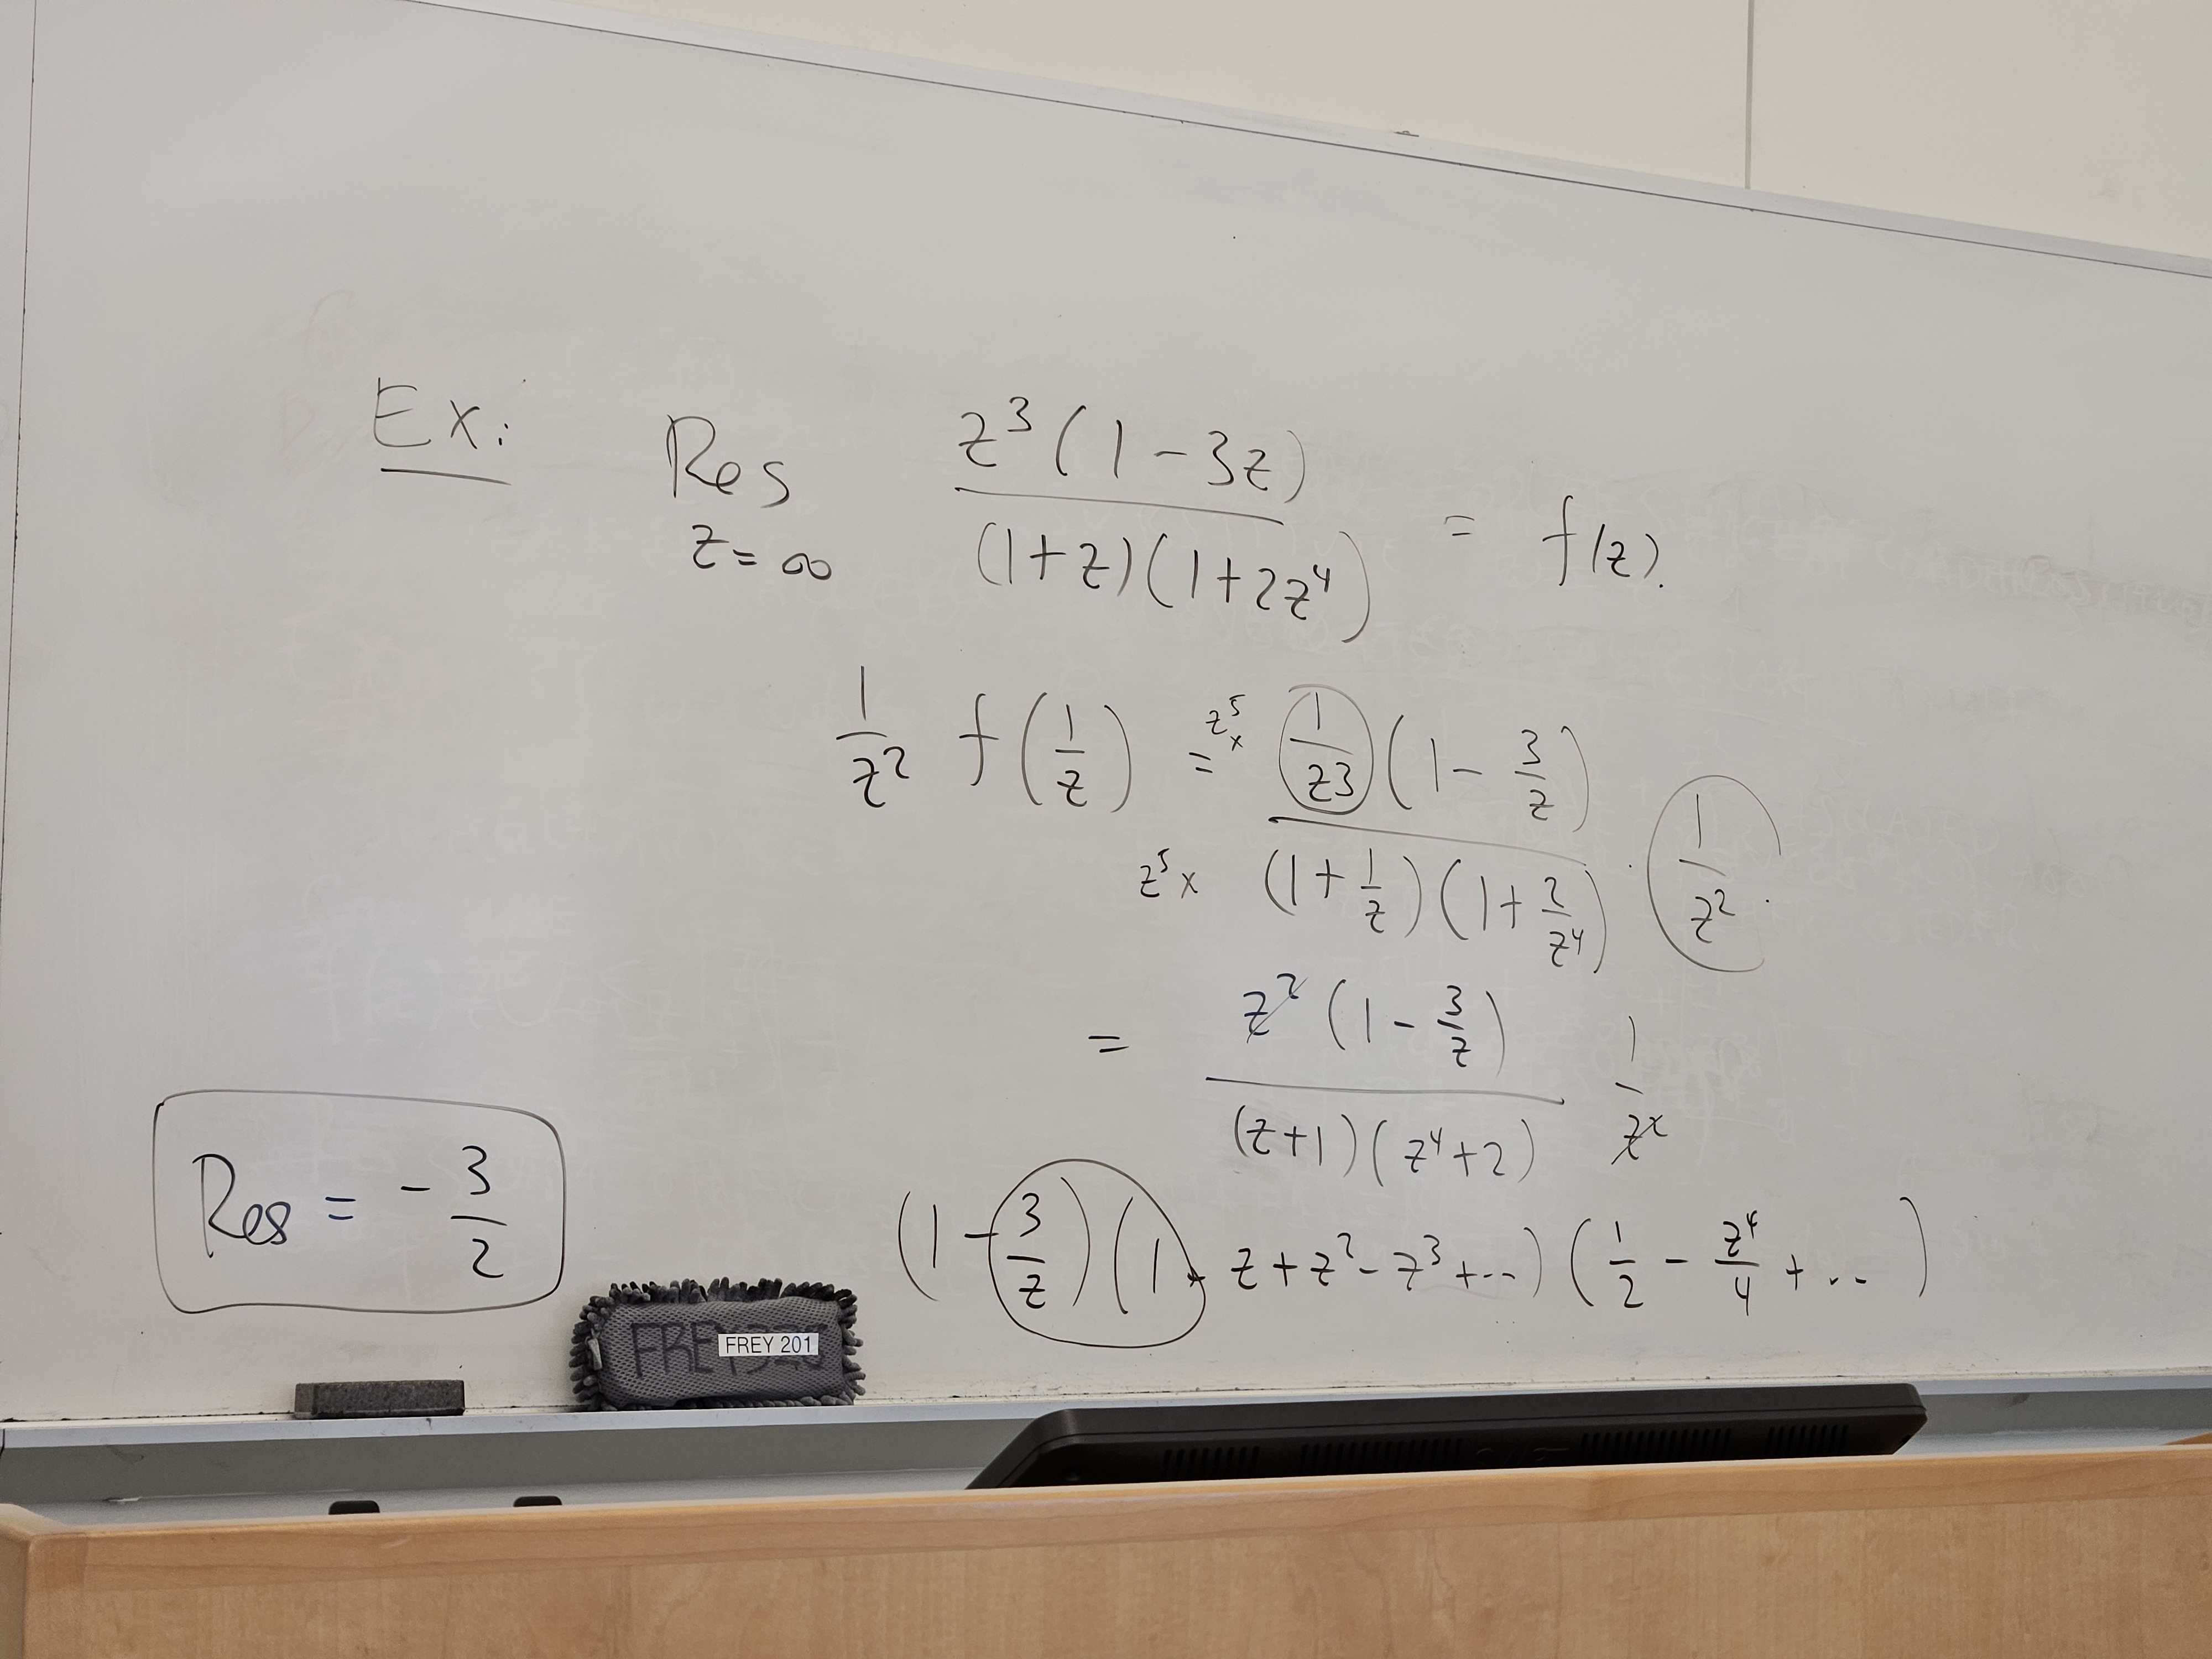 Ex: Res z=∞ z³(1-3z) / (1+z)(1+2z⁴) = f(z).
1/z² f(1/z) = z⁵x 1/z3 (1 - 3/z) / z⁵x (1+1/z)(1+2/z⁴) · 1/z².
= z²(1 - 3/z) / (z+1)(z⁴+2) 1/z²
(1 - 3/z)(1 - z + z² - z³ + ...)(1/2 - z⁴/4 + ..)
Res = - 3/2
FREY 201